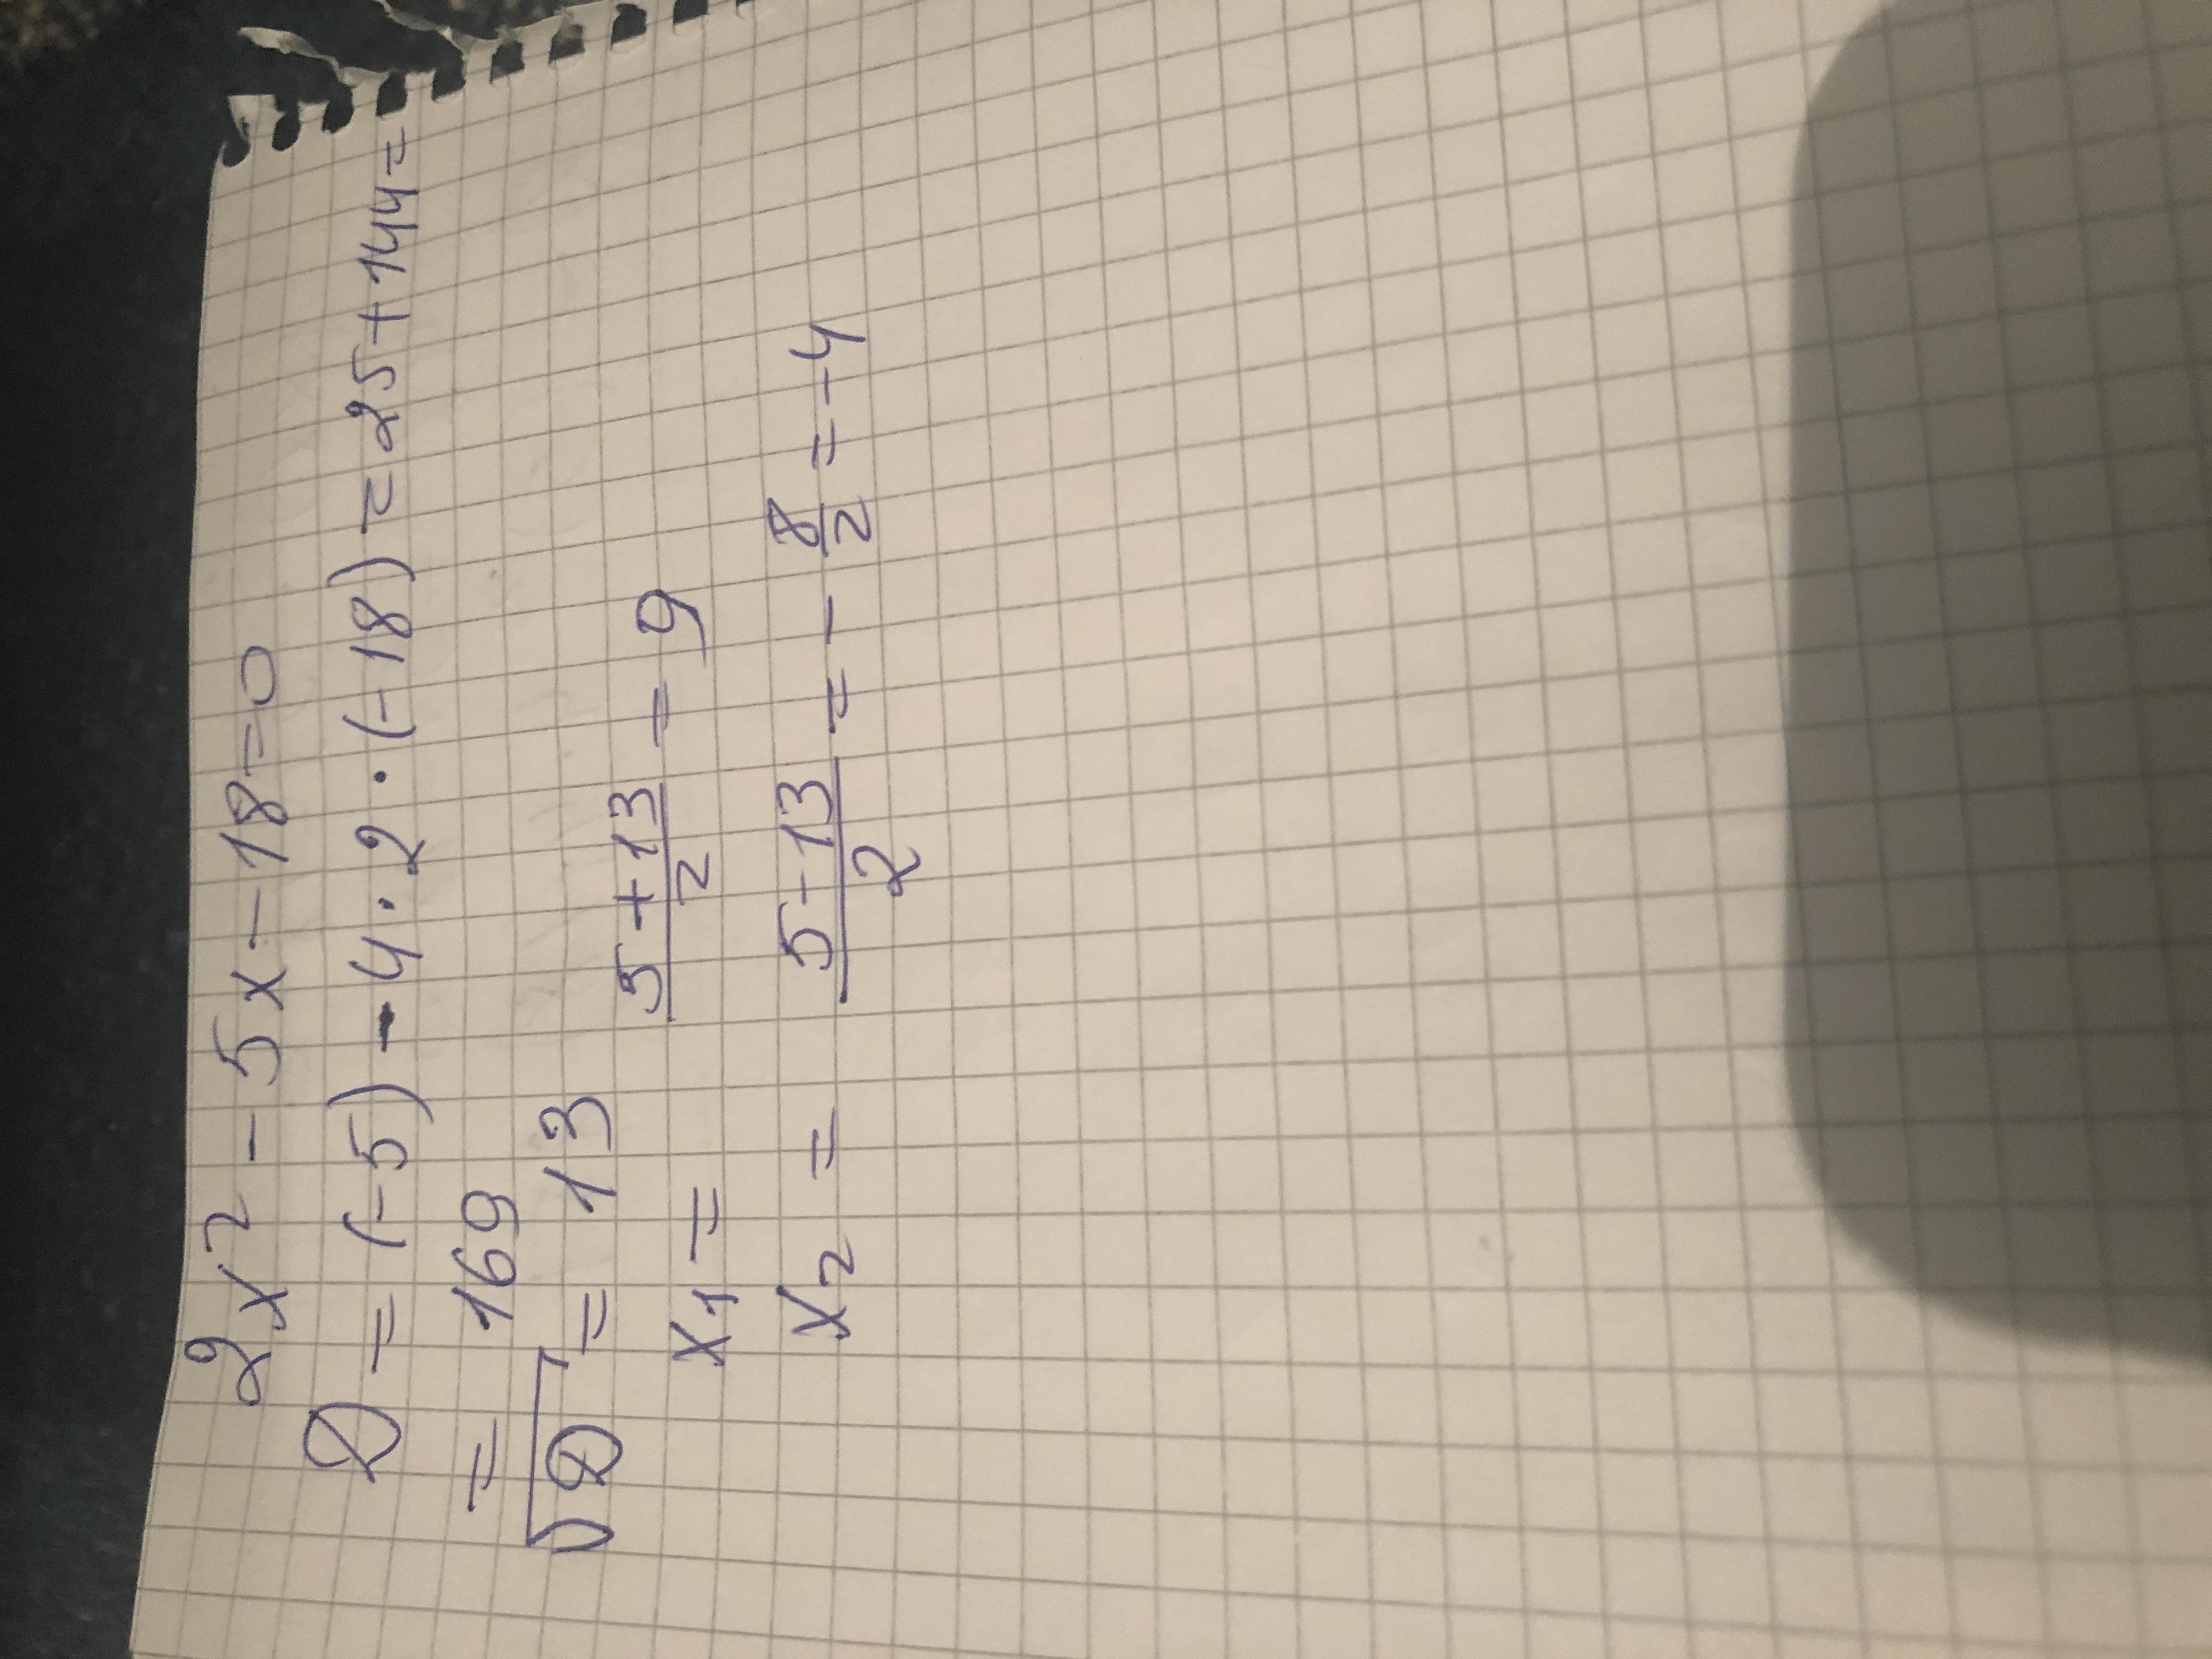 2x² - 5x - 18 = 0
D = (-5) - 4 · 2 · (-18) = 25 + 144 =
= 169
√D = 13
x₁ = (5 + 13)/2 = 9
x₂ = (5 - 13)/2 = - 8/2 = -4